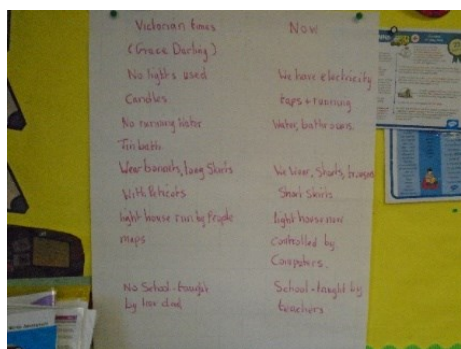 Victorian times
(Grace Darling)
No lights used
Candles
No running Water
Tin bath
Wear bonnets, long Skirts
With Peticots
light house run by People
maps
No School - taught
by her dad
Now
We have electricity
taps + running
Water, bathrooms.
We Wear, Shorts, trousers
Short Skirts
light house now
controlled by
Computers.
School - taught by
teachers